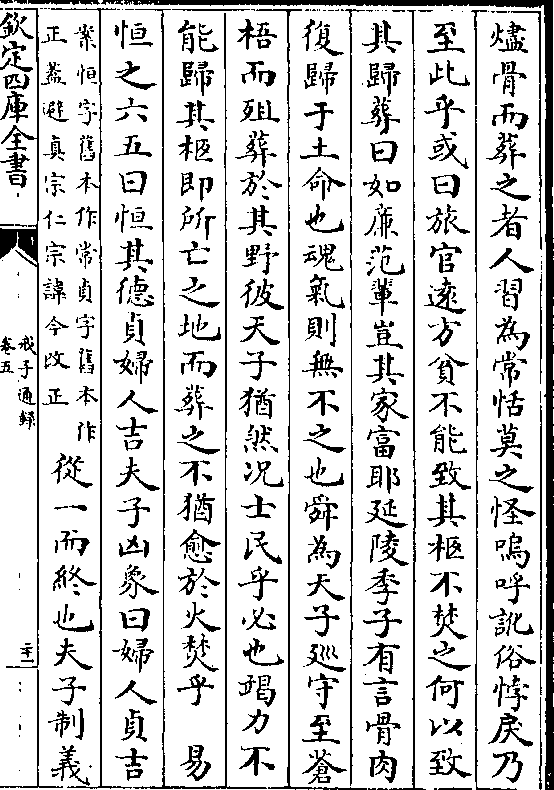 燼骨而葬之者人習為常恬莫之怪嗚呼訛俗悖戾乃
至此乎或曰旅官遠方貧不能致其柩不焚之何以致
其歸葬曰如廉范輩豈其家富耶延陵季子有言骨肉
復歸于土命也魂氣則無不之也舜為天子廵守至蒼
梧而殂葬於其野彼天子猶然况士民乎必也竭力不
能歸其柩即所亡之地而葬之不猶愈於火焚乎 易
恒之六五曰恒其德貞婦人吉夫子凶象曰婦人貞吉
案恒字舊本作常貞字舊本作
正葢避真宗仁宗諱今改正
從一而終也夫子制義
欽定四庫全書
戒子通録
卷五
二十一